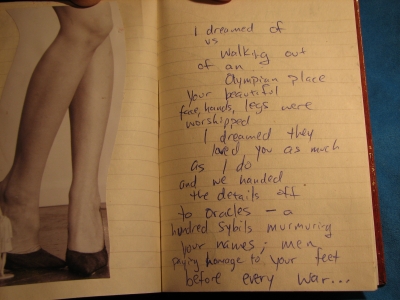 I dreamed of
us
walking out
of an
Olympian place
Your beautiful
face, hands, legs were
worshipped
I dreamed they
loved you as much
as I do
and we handed
the details off
to oracles – a
hundred Sybils murmuring
your names; men
paying homage to your feet
before every war...